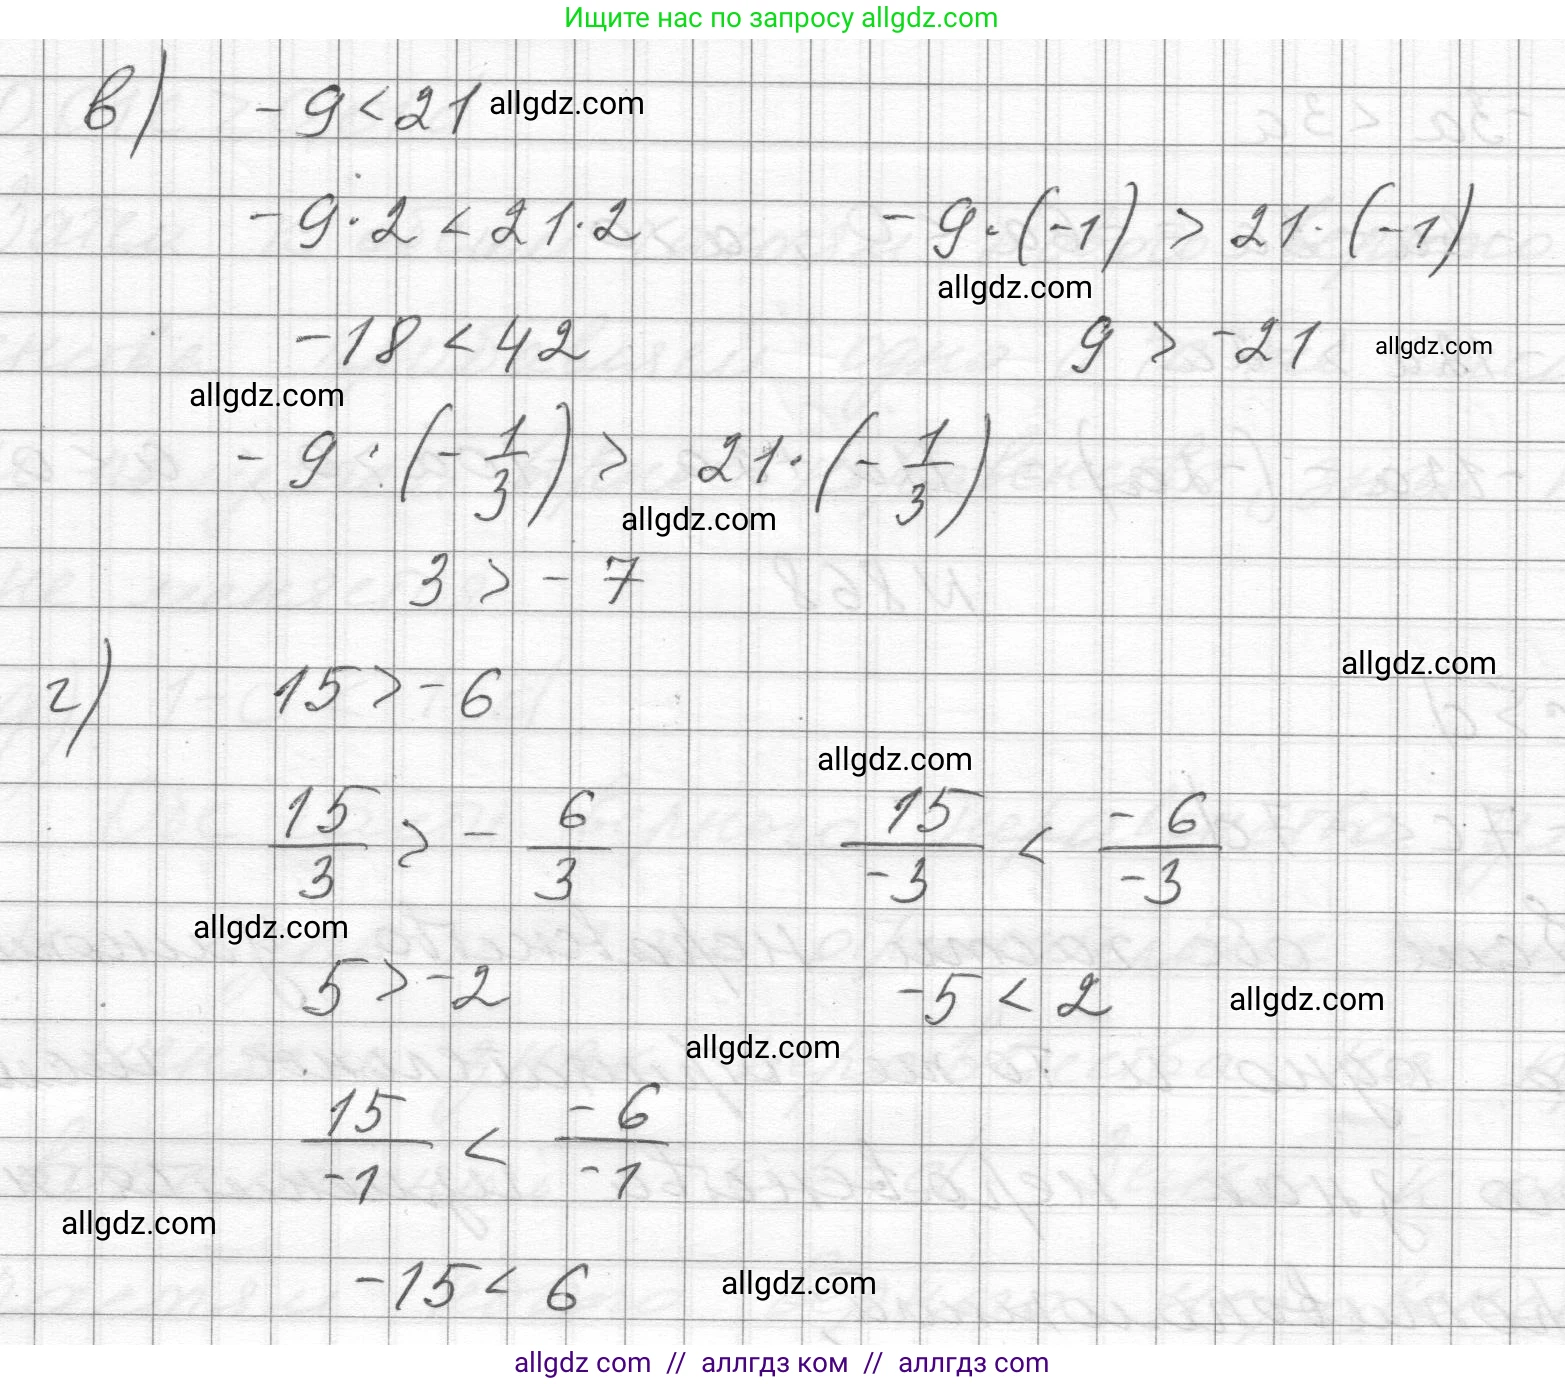 Ищите нас по запросу allgdz.com
в) -9 < 21 allgdz.com
-9·2 < 21·2 -9·(-1) > 21·(-1)
allgdz.com
-18 < 42 9 > -21 allgdz.com
allgdz.com
-9·(-1/3) > 21·(-1/3)
allgdz.com
3 > -7
allgdz.com
г) 15 > -6
allgdz.com
15/3 > -6/3 15/-3 < -6/-3
allgdz.com
5 > -2 -5 < 2 allgdz.com
allgdz.com
15/-1 < -6/-1
allgdz.com
-15 < 6 allgdz.com
allgdz com // аллгдз ком // аллгдз com